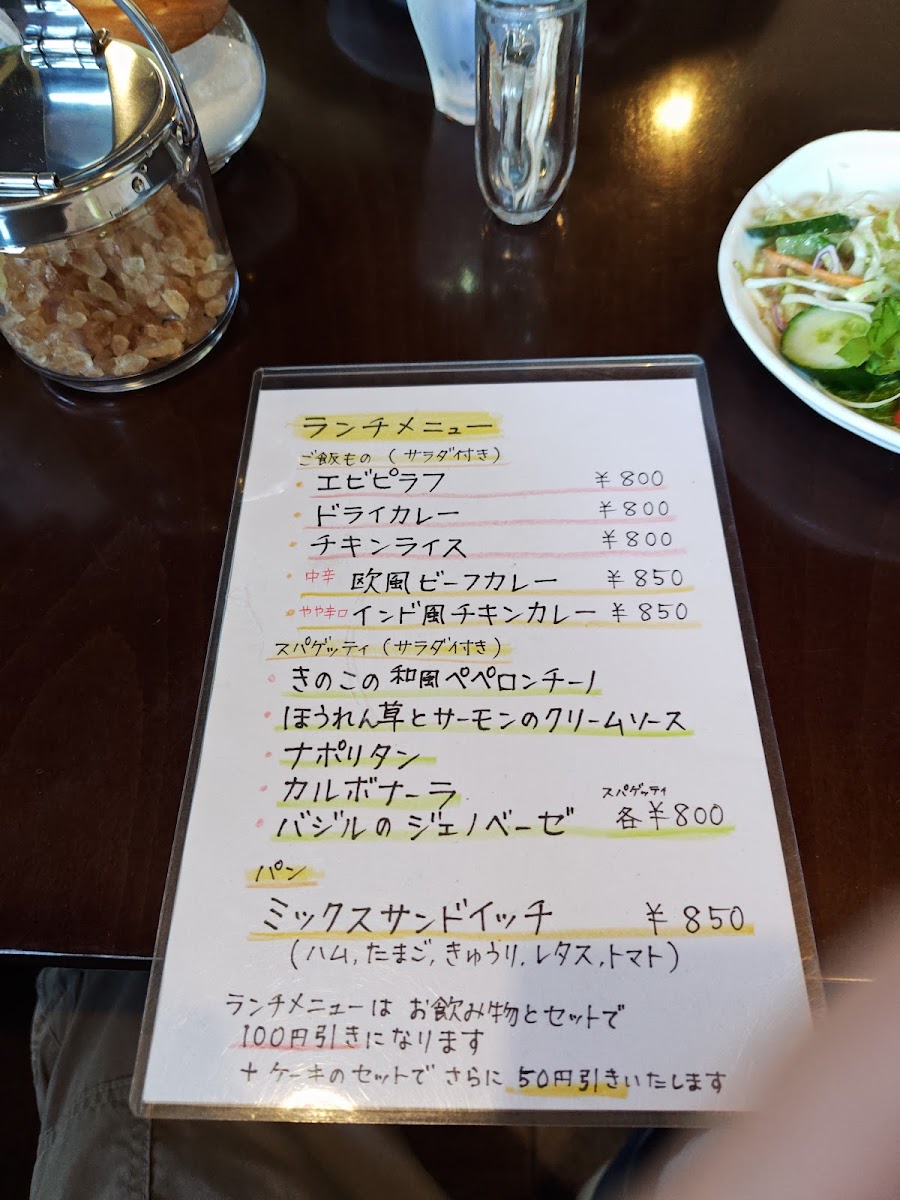 ランチメニュー
ご飯もの (サラダ付き)
・エビピラフ ¥800
・ドライカレー ¥800
・チキンライス ¥800
・中辛 欧風ビーフカレー ¥850
・やや辛口 インド風チキンカレー ¥850
スパゲッティ (サラダ付き)
・きのこの和風ペペロンチーノ
・ほうれん草とサーモンのクリームソース
・ナポリタン
・カルボナーラ
・バジルのジェノベーゼ スパゲッティ 各¥800
パン
ミックスサンドイッチ ¥850
(ハム,たまご,きゅうり,レタス,トマト)
ランチメニューは お飲み物とセットで
100円引きになります
+ケーキのセットで さらに 50円引きいたします